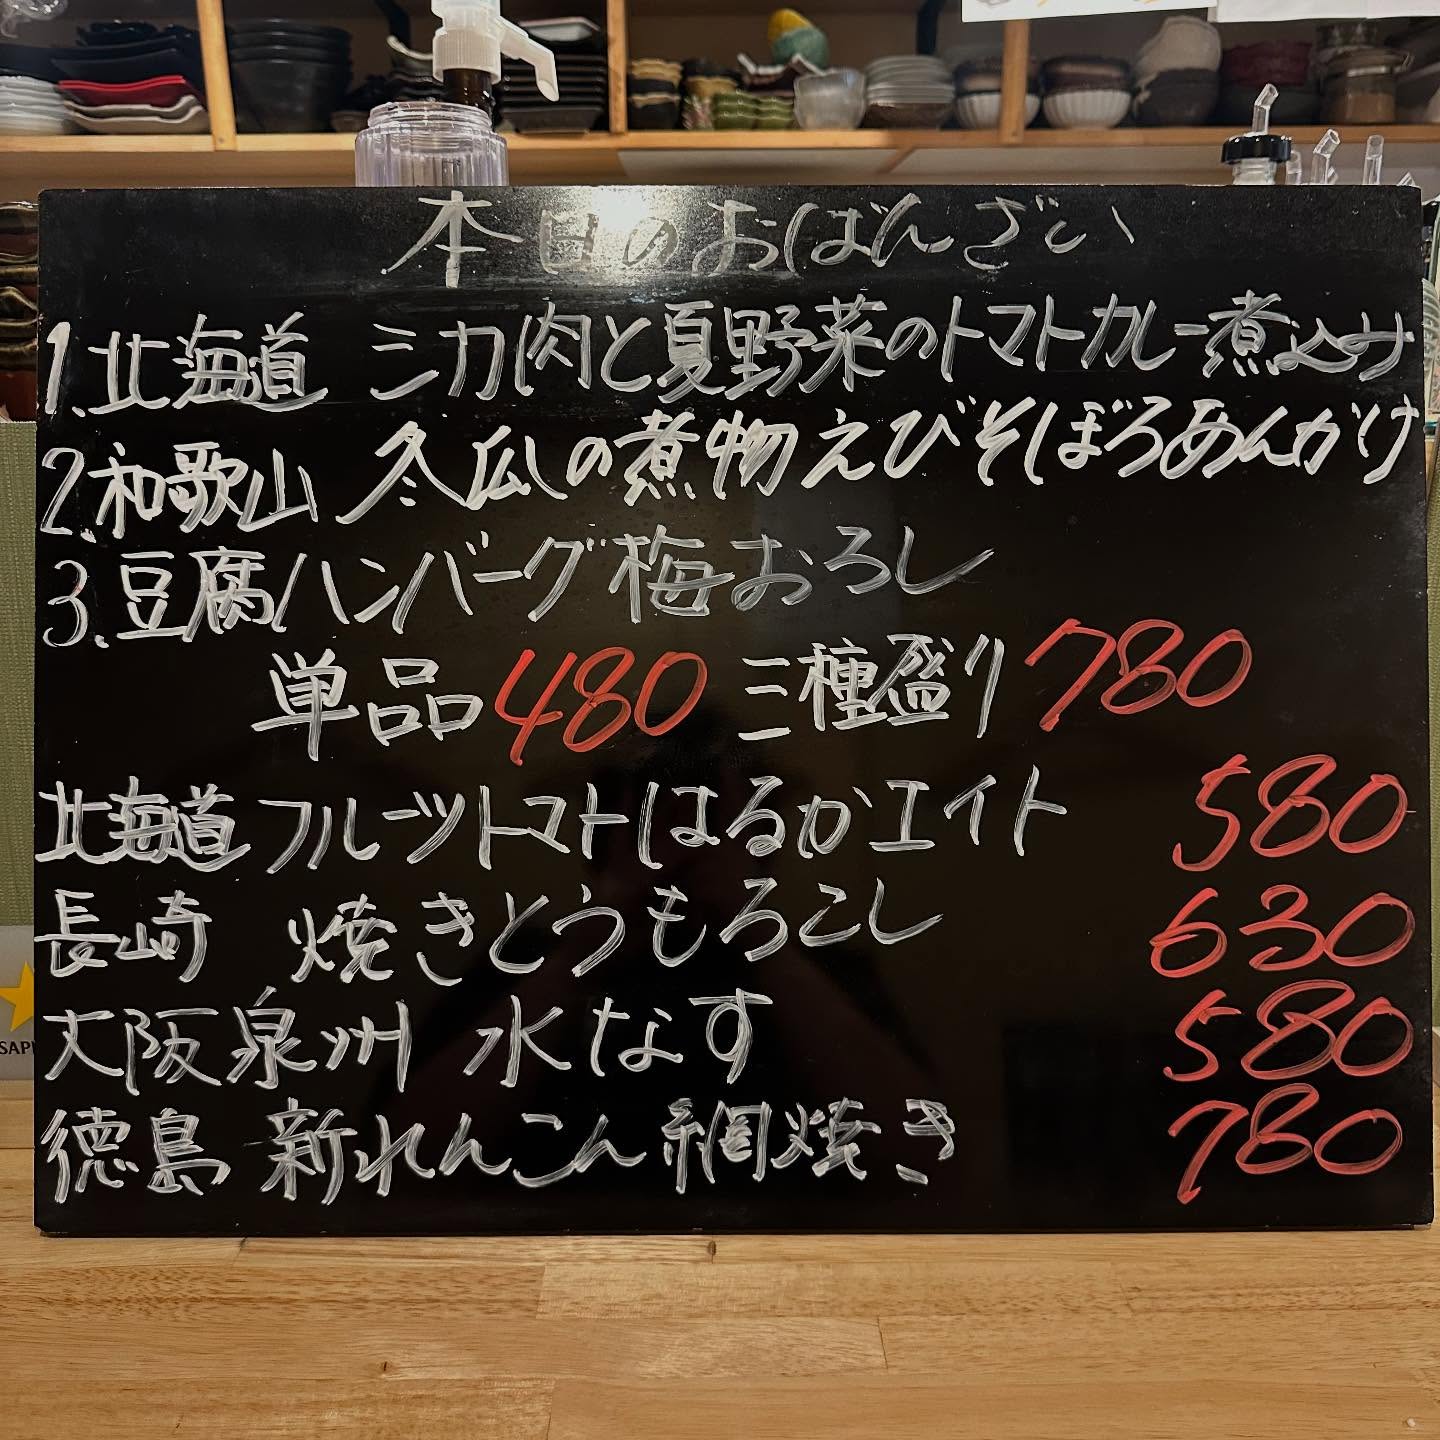 本日のおばんざい
1.北海道 シカ肉と夏野菜のトマトカレー煮込み
2.和歌山 冬瓜の煮物えびそぼろあんかけ
3.豆腐ハンバーグ梅おろし
単品480 三種盛り780
北海道フルーツトマトはるかエイト 580
長崎 焼きとうもろこし 630
大阪泉州 水なす 580
徳島 新れんこん網焼き 780